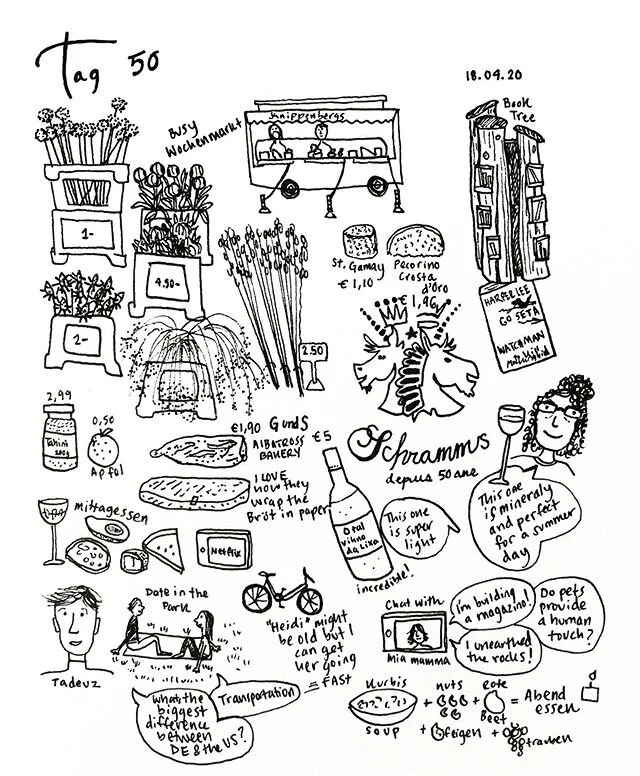 Tag 50
18.04.20
Busy
Wochenmarkt
Knippenbergs
Book
Tree
1-
4.90-
2-
2.50
St. Gamay
€1,10
Pecorino
Crosta
d'oro
€1,96
HARPER LEE
GO SET A
WATCHMAN
2,99
Tahini
0,50
Apfel
€1,90
ALBATROSS
BAKERY
I LOVE
how they
wrap the
Brot in paper
€5
Schramms
depuis 50 ane
This one
is mineraly
and perfect
for a summer
day
This one
is super
light
incredible!
mittagessen
Netflix
Tadeuz
Date in the
Park
What's the
biggest
difference
between
DE & the US?
Transportation
"Heidi" might
be old but I
can get
her going
= FAST
Chat with
mia mamma
i'm building
a magazino!
I unearthed
the rocks!
Do pets
provide
a human
touch?
Kurbis
soup
+ nuts
+ rote
Beet
= Abend
essen
+ feigen
+ trauben